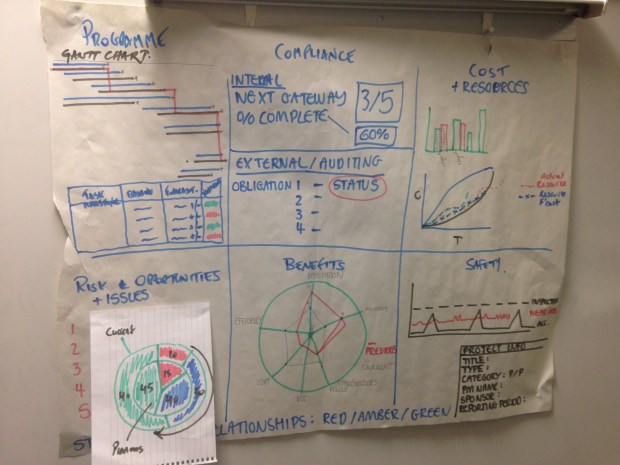 PROGRAMME
GANTT CHART.
COMPLIANCE
INTERNAL
NEXT GATEWAY 3/5
% COMPLETE
60%
EXTERNAL/AUDITING
OBLIGATION 1 - STATUS
2 -
3 -
4 -
COST
+ RESOURCES
C
T
ACTUAL
RESOURCE
RESOURCE
TASK
BASELINE
FORECAST
RISK & OPPORTUNITIES
+ ISSUES
1
2
3
4
5
Current
20
15
45
40
40
30
Previous
BENEFITS
PREVIOUS
CURRENT
SAFETY.
INSPECTION
NEAR MISS
ACC.
PROJECT INFO
TITLE:
TYPE:
CATEGORY: P/P
PM NAME:
SPONSOR:
REPORTING PERIOD:
LATIONSHIPS: RED/AMBER/GREEN